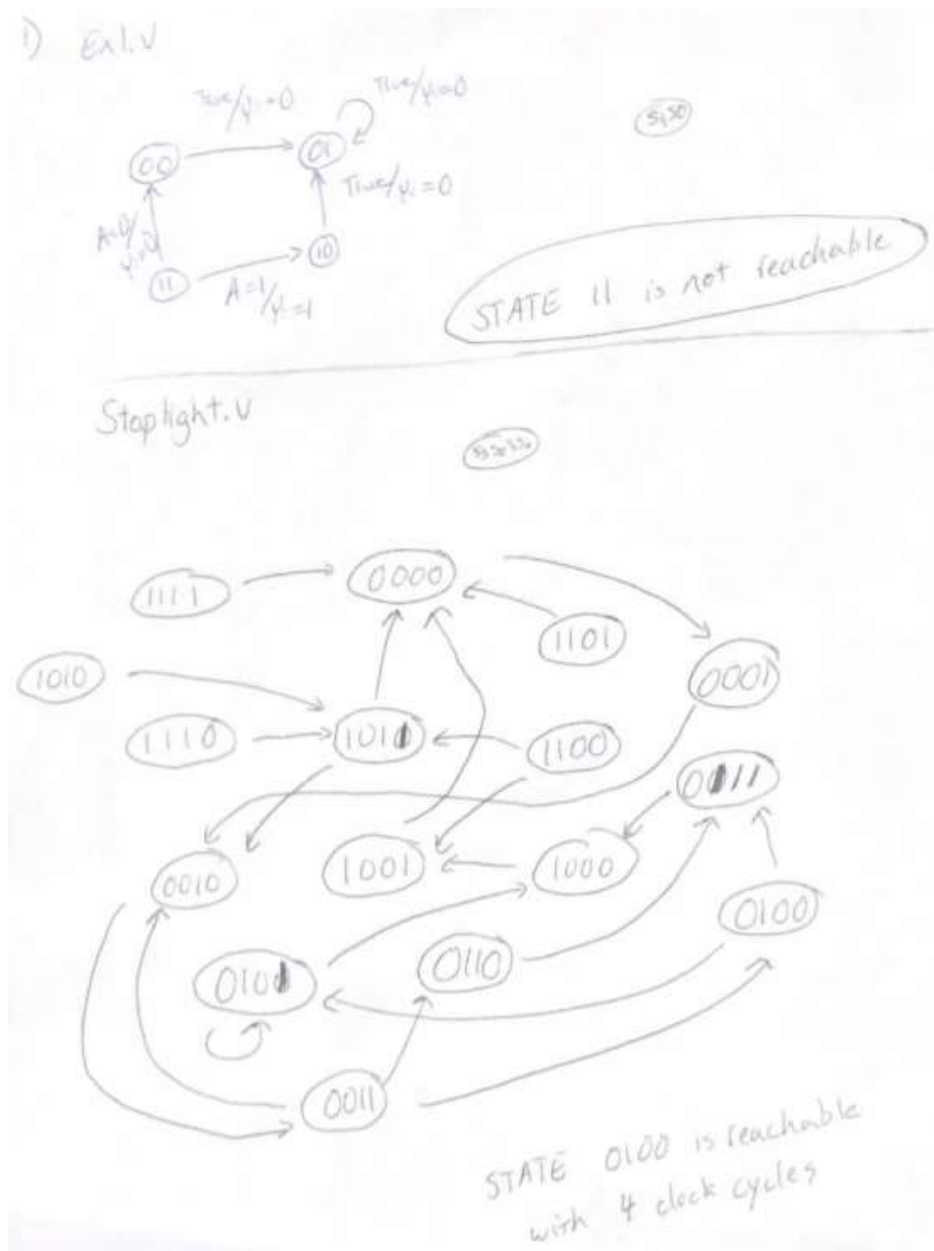 1) Ex1.v
True/Y1=0
True/Y1=0
S1S0
00
01
True/Y1=0
A=0/
10
11
A=1/Y1=1
STATE 11 is not reachable
Stoplight.v
S3S2S1S0
0000
1111
1101
1010
0001
1110
1011
1100
0111
0010
1001
1000
0100
0101
0110
0011
STATE 0100 is reachable
with 4 clock cycles